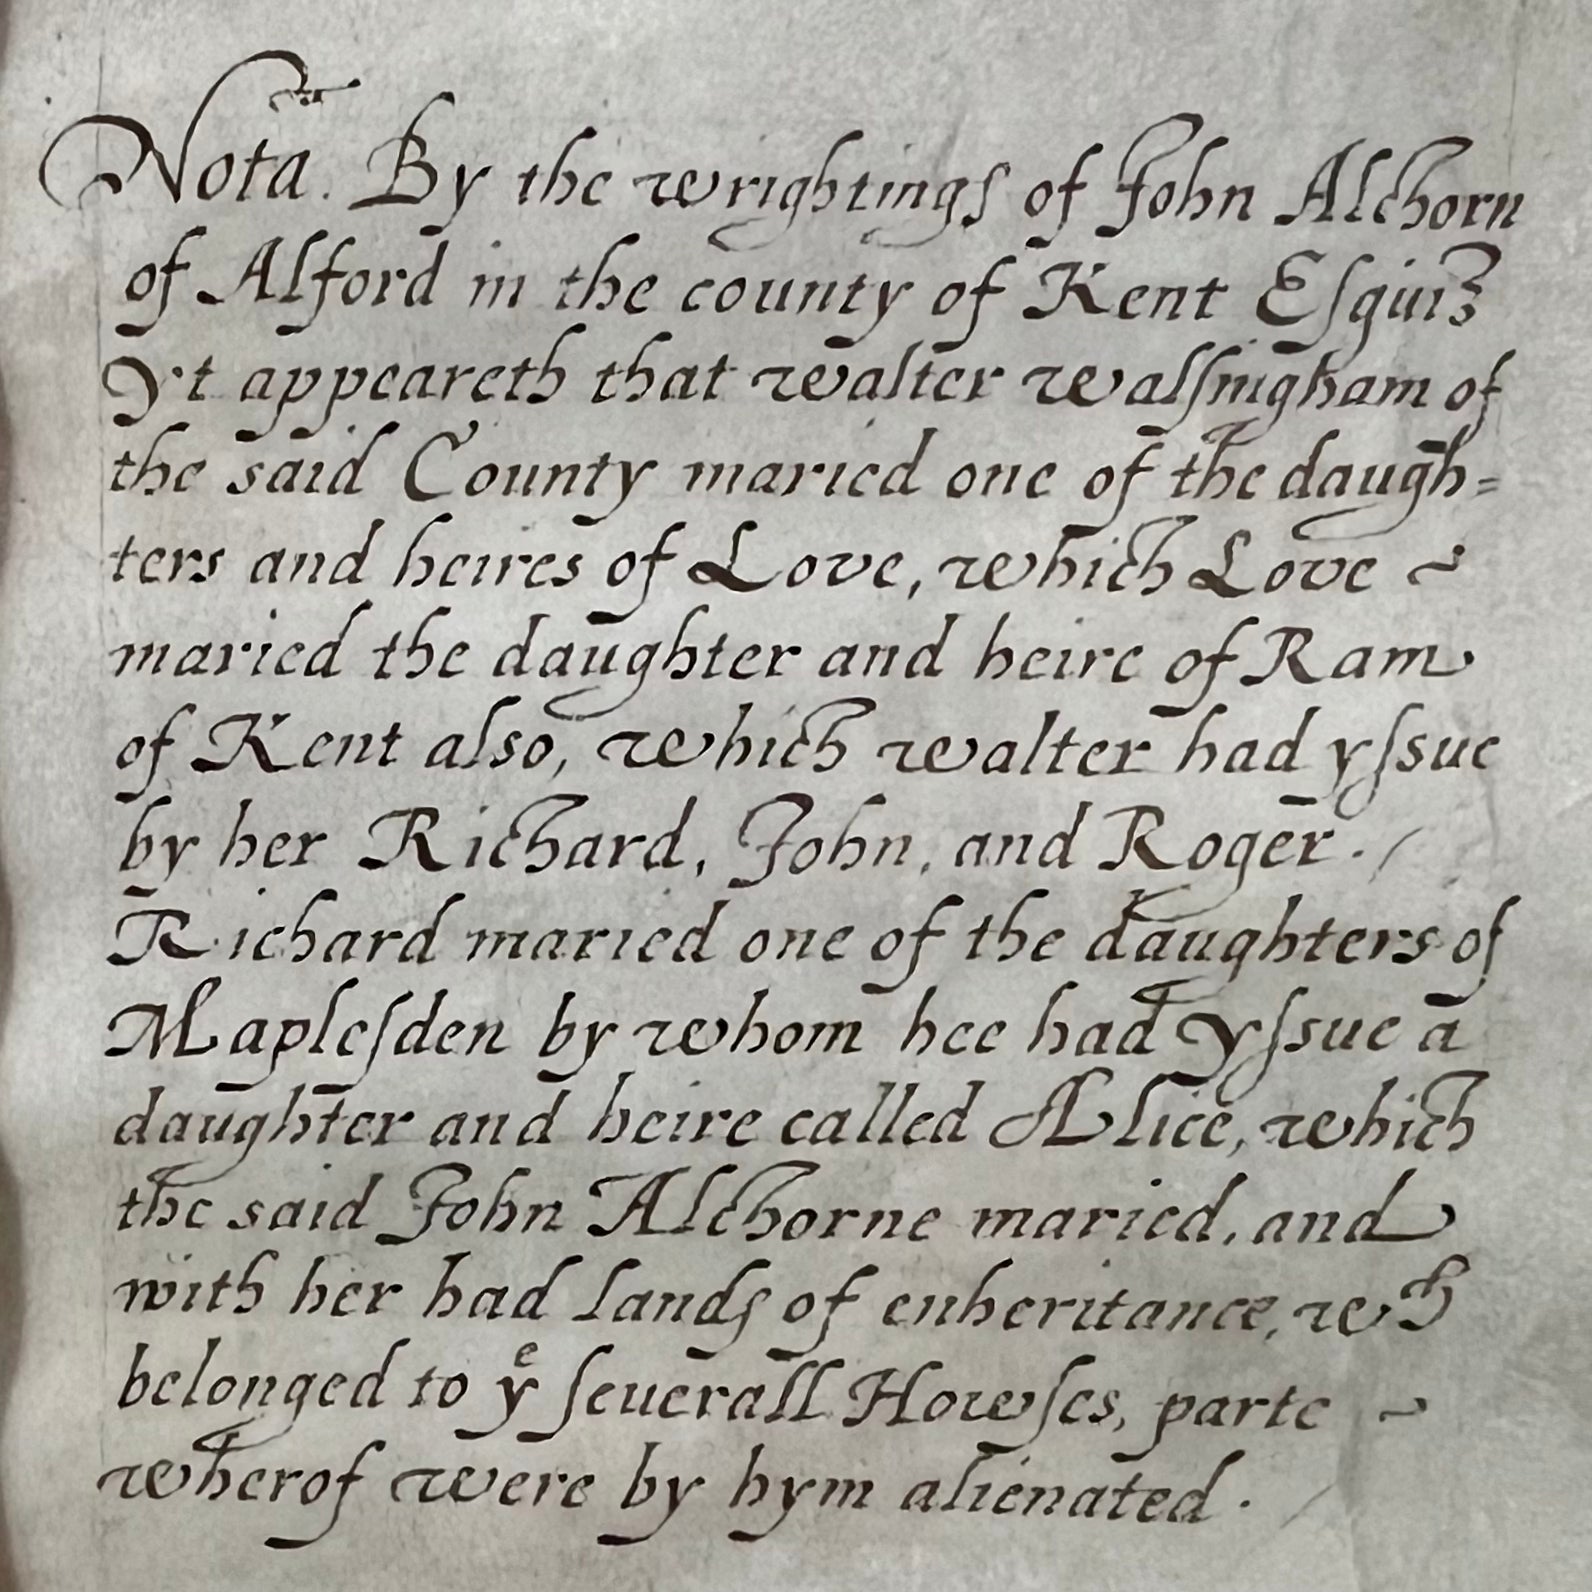 Nota. By the wrightings of John Alchorn
of Alford in the county of Kent Esquir
Yt appeareth that walter walsingham of
the said County maried one of the daugh=
ters and heires of Love, which Love ~
maried the daughter and heire of Ram
of Kent also, which walter had yssue
by her Richard, John, and Roger. /
Richard maried one of the daughters of
Maplesden by whom hee had Yssue a
daughter and heire called Alice, which
the said John Alchorne maried, and
with her had lands of enheritance, wch
belonged to ye severall Howses, parte ~
wherof were by hym alienated.